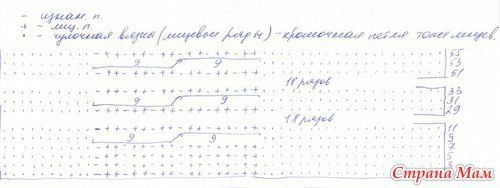 - - изнан. п.
+ - лиц. п.
• - чулочная вязка (лицевые ряды) - кромочная петля тоже лицев.
55
9 9 53
51
18 рядов
33
9 9 31
29
18 рядов
11
9 9 9
7
5
3
Страна Мам